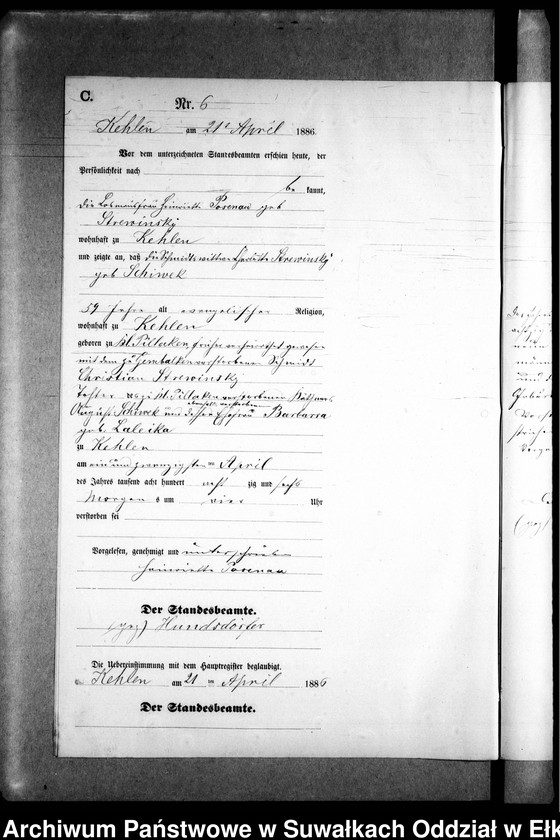 C.
Nr. 6
Kehlen am 21t April 1886.
Vor dem unterzeichneten Standesbeamten erschien heute, der
Persönlichkeit nach
be kannt,
die Losmannsfrau Heinriette Posenau geb
Strewinsky
wohnhaft zu Kehlen
und zeigte an, daß die Schmidtswittwe Strewinsky
geb Schiwek
59 Jahre alt evangelischer Religion,
wohnhaft zu Kehlen
geboren zu Kl. Pillacken früher verheirathet gewesen
mit dem zu Gembalken verstorbenen Schmidt
Christian Strewinsky
Tochter des zu Kl. Pillacken verstorbenen Käthners
August Schiwek und dessen daselbst verstorbenen Ehefrau Barbarra
geb. Laleika
zu Kehlen
am ein und zwanzigsten April
des Jahres tausend acht hundert acht zig und sechs
Morgen s um vier Uhr
verstorben sei
Vorgelesen, genehmigt und unterschrieben
Heinriette Posenau
Der Standesbeamte.
(gez) Hundsdörfer
Die Uebereinstimmung mit dem Hauptregister beglaubigt.
Kehlen am 21 ten April 1886
Der Standesbeamte.
Archiwum Państwowe w Suwałkach Oddział w Ełk